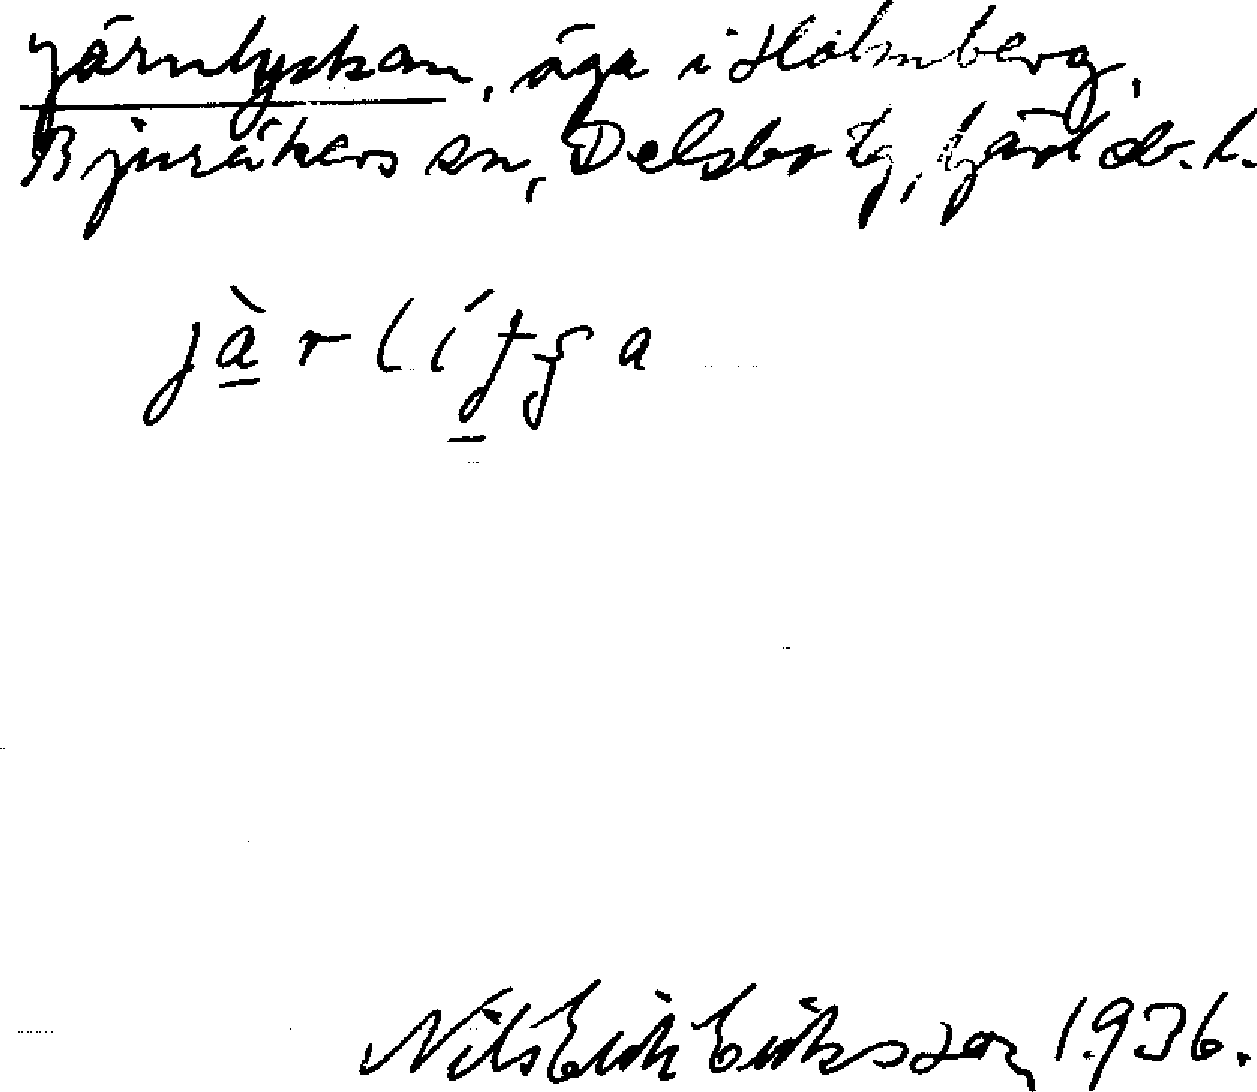 Järnlyckan, äga i Holmberg,
Bjuråkers sn, Delsbo tg, Gävleb. l.
Nils Erik Eriksson 1936.